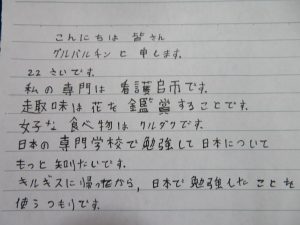 こんにちは 皆さん
グルバルチンと 申します。
22 さいです。
私の 専門は 看護師です。
趣味は 花を 鑑賞 することです。
好な 食べ物は クルダクです。
日本の 専門学校で 勉強して 日本について
もっと 知りたいです。
キルギスに 帰ってから, 日本で 勉強した ことを
使う つもりです。